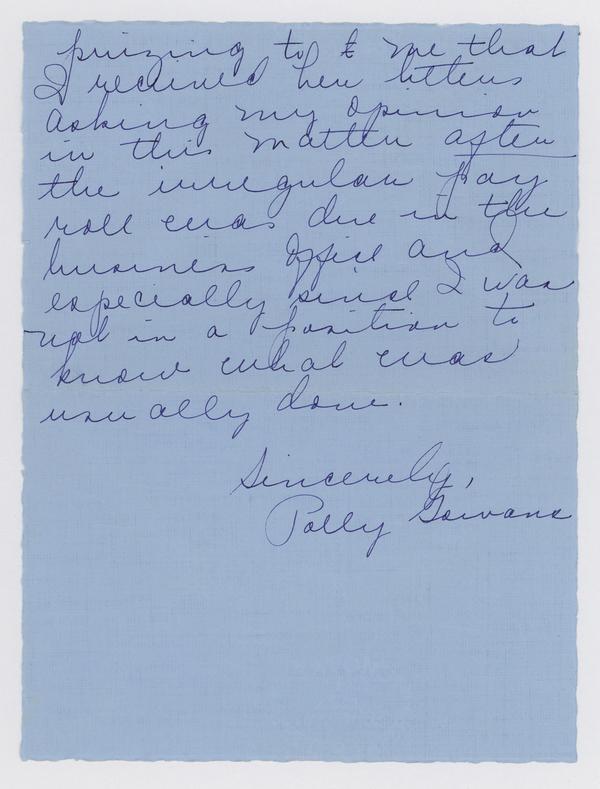 prizing to t me that
I received her letters
asking my opinion
in this matter after
the irregular pay
roll was due in the
business office and
especially since I was
not in a position to
know what was
usually done.
Sincerely,
Polly Gowans